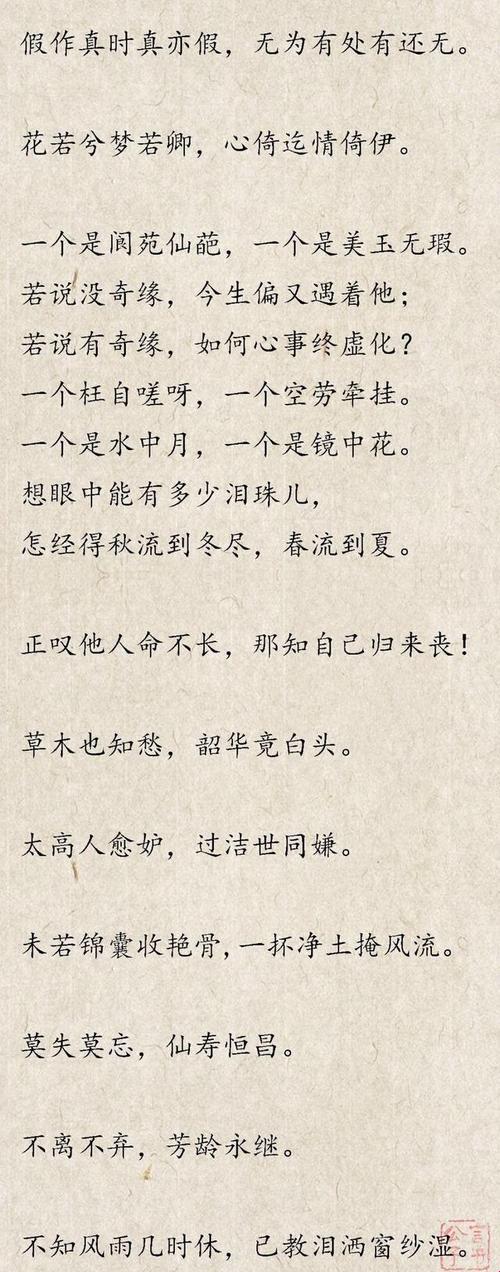 假作真时真亦假，无为有处有还无。
花若兮梦若卿，心倚迄情倚伊。
一个是阆苑仙葩，一个是美玉无瑕。
若说没奇缘，今生偏又遇着他；
若说有奇缘，如何心事终虚化？
一个枉自嗟呀，一个空劳牵挂。
一个是水中月，一个是镜中花。
想眼中能有多少泪珠儿，
怎经得秋流到冬尽，春流到夏。
正叹他人命不长，那知自己归来丧！
草木也知愁，韶华竟白头。
太高人愈妒，过洁世同嫌。
未若锦囊收艳骨,一抔净土掩风流。
莫失莫忘，仙寿恒昌。
不离不弃，芳龄永继。
不知风雨几时休，已教泪洒窗纱湿。